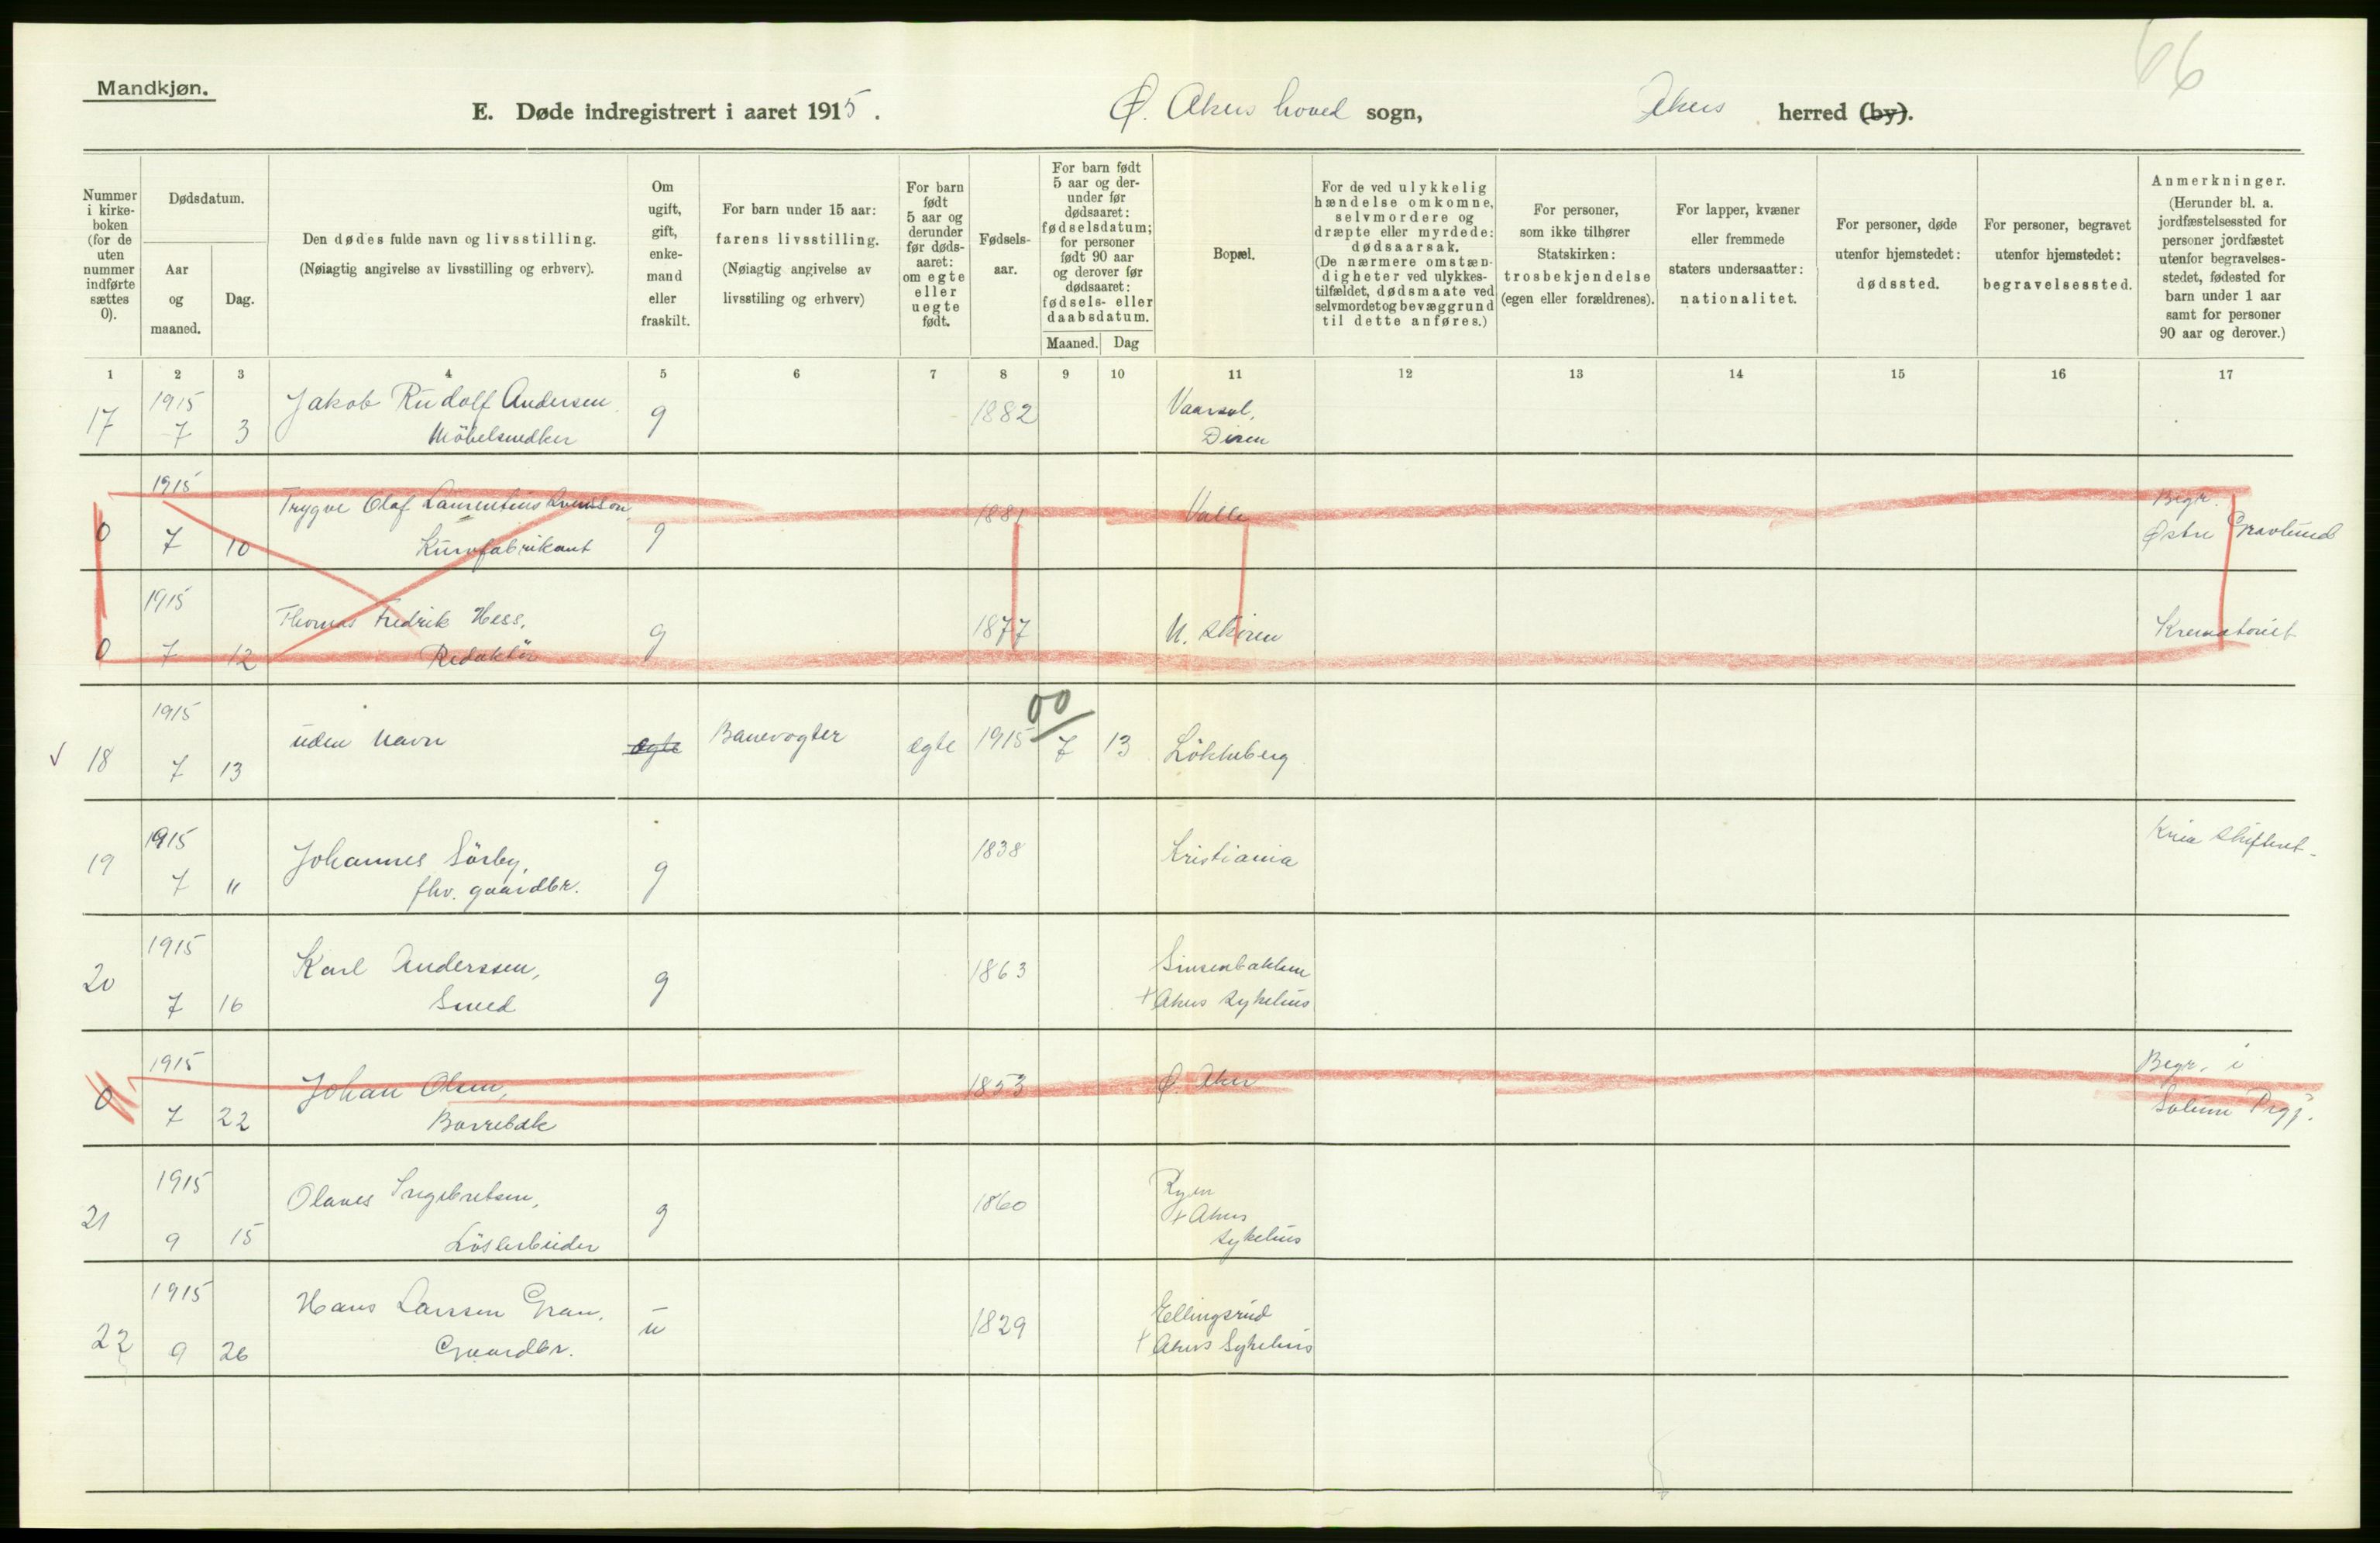 66
Mandkjøn.
E. Døde indregistrert i aaret 1915. Ø. Akers hoved sogn, Akers herred (by).
Nummer i kirke-boken (for de uten nummer indførte sættes 0).
Dødsdatum.
Aar og maaned.
Dag.
Den dødes fulde navn og livsstilling.
(Nøiagtig angivelse av livsstilling og erhverv).
Om ugift, gift, enke-mand eller fraskilt.
For barn under 15 aar:
farens livsstilling.
(Nøiagtig angivelse av
livsstiling og erhverv)
For barn født 5 aar og derunder før døds-aaret: om egte eller uegte født.
Fødsels-aar.
For barn født 5 aar og der-under før dødsaaret: fødselsdatum; for personer født 90 aar og derover før dødsaaret: fødsels- eller daabsdatum.
Maaned. Dag
Bopæl.
For de ved ulykkelig hændelse omkomne, selvmordere og dræpte eller myrdede: dødsaarsak. (De nærmere omstæn-digheter ved ulykkes-tilfældet, dødsmaate ved selvmordet og bevæggrund til dette anføres.)
For personer, som ikke tilhører Statskirken: trosbekjendelse (egen eller forældrenes).
For lapper, kvæner eller fremmede staters undersaatter: nationalitet.
For personer, døde utenfor hjemstedet: dødssted.
For personer, begravet utenfor hjemstedet: begravelsessted.
Anmerkninger. (Herunder bl. a. jordfæstelsessted for personer jordfæstet utenfor begravelses-stedet, fødested for barn under 1 aar samt for personer 90 aar og derover.)
1 2 3 4 5 6 7 8 9 10 11 12 13 14 15 16 17
17 1915 7 3 Jakob Rudolf Andersen g 1882 Vaarsol,
Møbelsnedker Disen
0 1915 7 10 Trygve Olaf Laurentius Svensson, g 1881 Valle Begr.
Kurvfabrikant Østre Gravlund
0 1915 7 12 Thomas Fredrik Hess, g 1877 N. Skøien Krematoriet
Redaktør
18 1915 7 13 uden navn egte Banevogter egte 1915 7 13 Løkkeberg
00
19 1915 7 " Johannes Sörby, g 1838 Kristiania Kria
fhv. gaardbr.
20 1915 7 16 Karl Anderssen, g 1863 Sinsenbakken
Smed + Akers sykehus
0 1915 7 22 Johan Olsen, 1853 Ø. Aker Begr. i
Borrebæk Solum Prgj.
21 1915 9 15 Olaves Ingebretsen, g 1860 Ryen
Løsarbeider + Akers sykehus
22 1915 9 26 Hans Larssen Gran, u 1829 Ellingsrud
Gaardbr. + Akers Sykehus